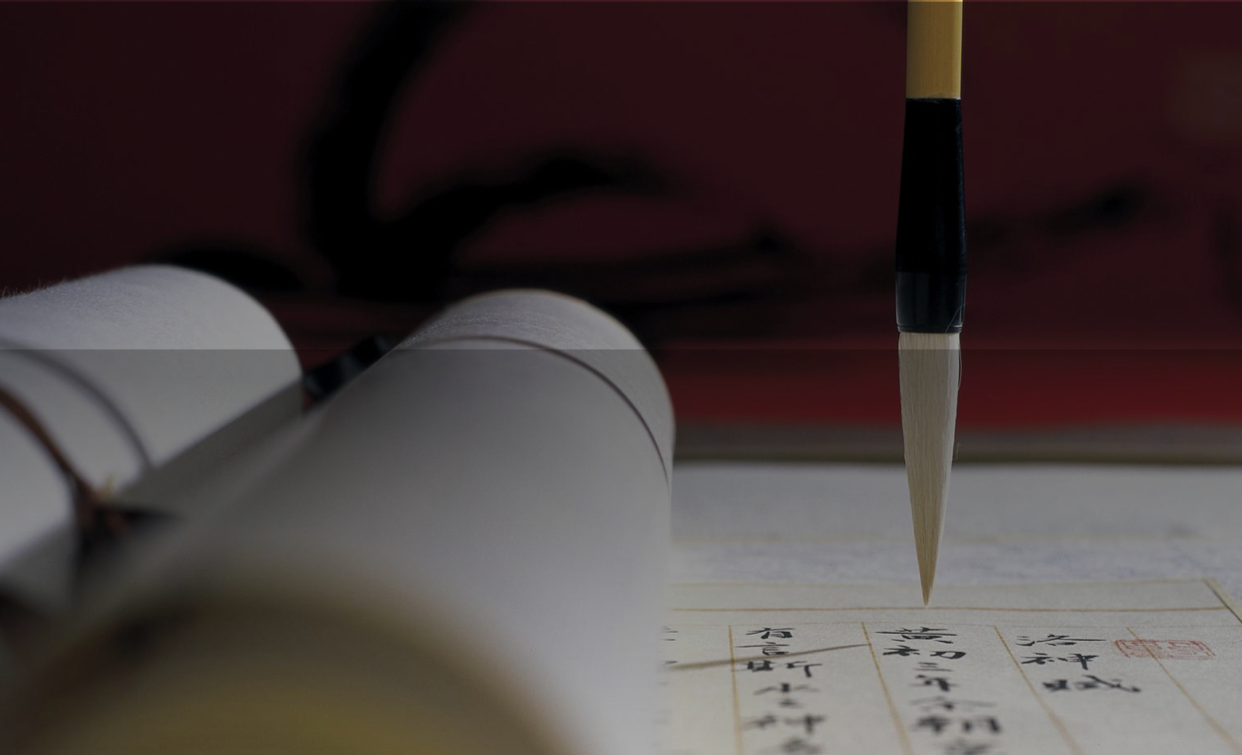 洛神賦
黃初三年余朝京
有言斯水之神名